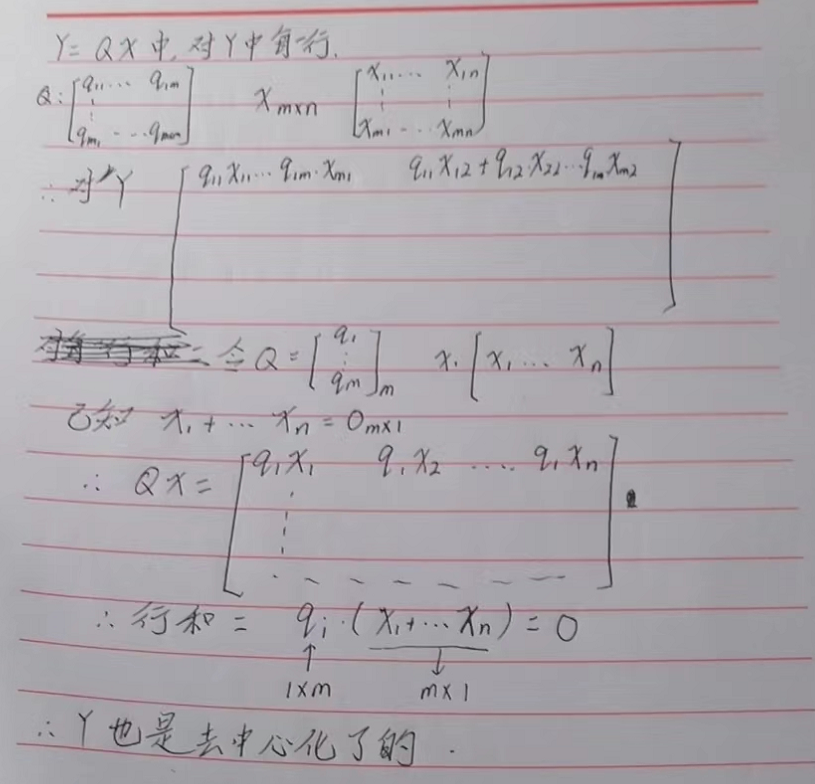 Y= QX 中, 对Y中每一行.
Q: [q₁₁... q₁m ⋮ qm₁ - ... qmm] Xm×n [x₁₁... x₁n ⋮ ⋮ xm₁ - ... xmn]
∴ 对于Y [q₁₁x₁₁... q₁m·xm₁ q₁₁x₁₂+q₁₂·x₂₂...q₁mxm₂]
令Q= [q₁ ⋮ qm]m x. [x₁ ... xn]
已知 x₁+ ... xn = 0m×1
∴ Qx= [q₁x₁ q₁x₂ .... q₁xn ⋮ . - - - - - -]
∴ 行和 = qi·(x₁+...xn) = 0
↑ ↓
1×m m×1
∴ Y也是去中心化了的.